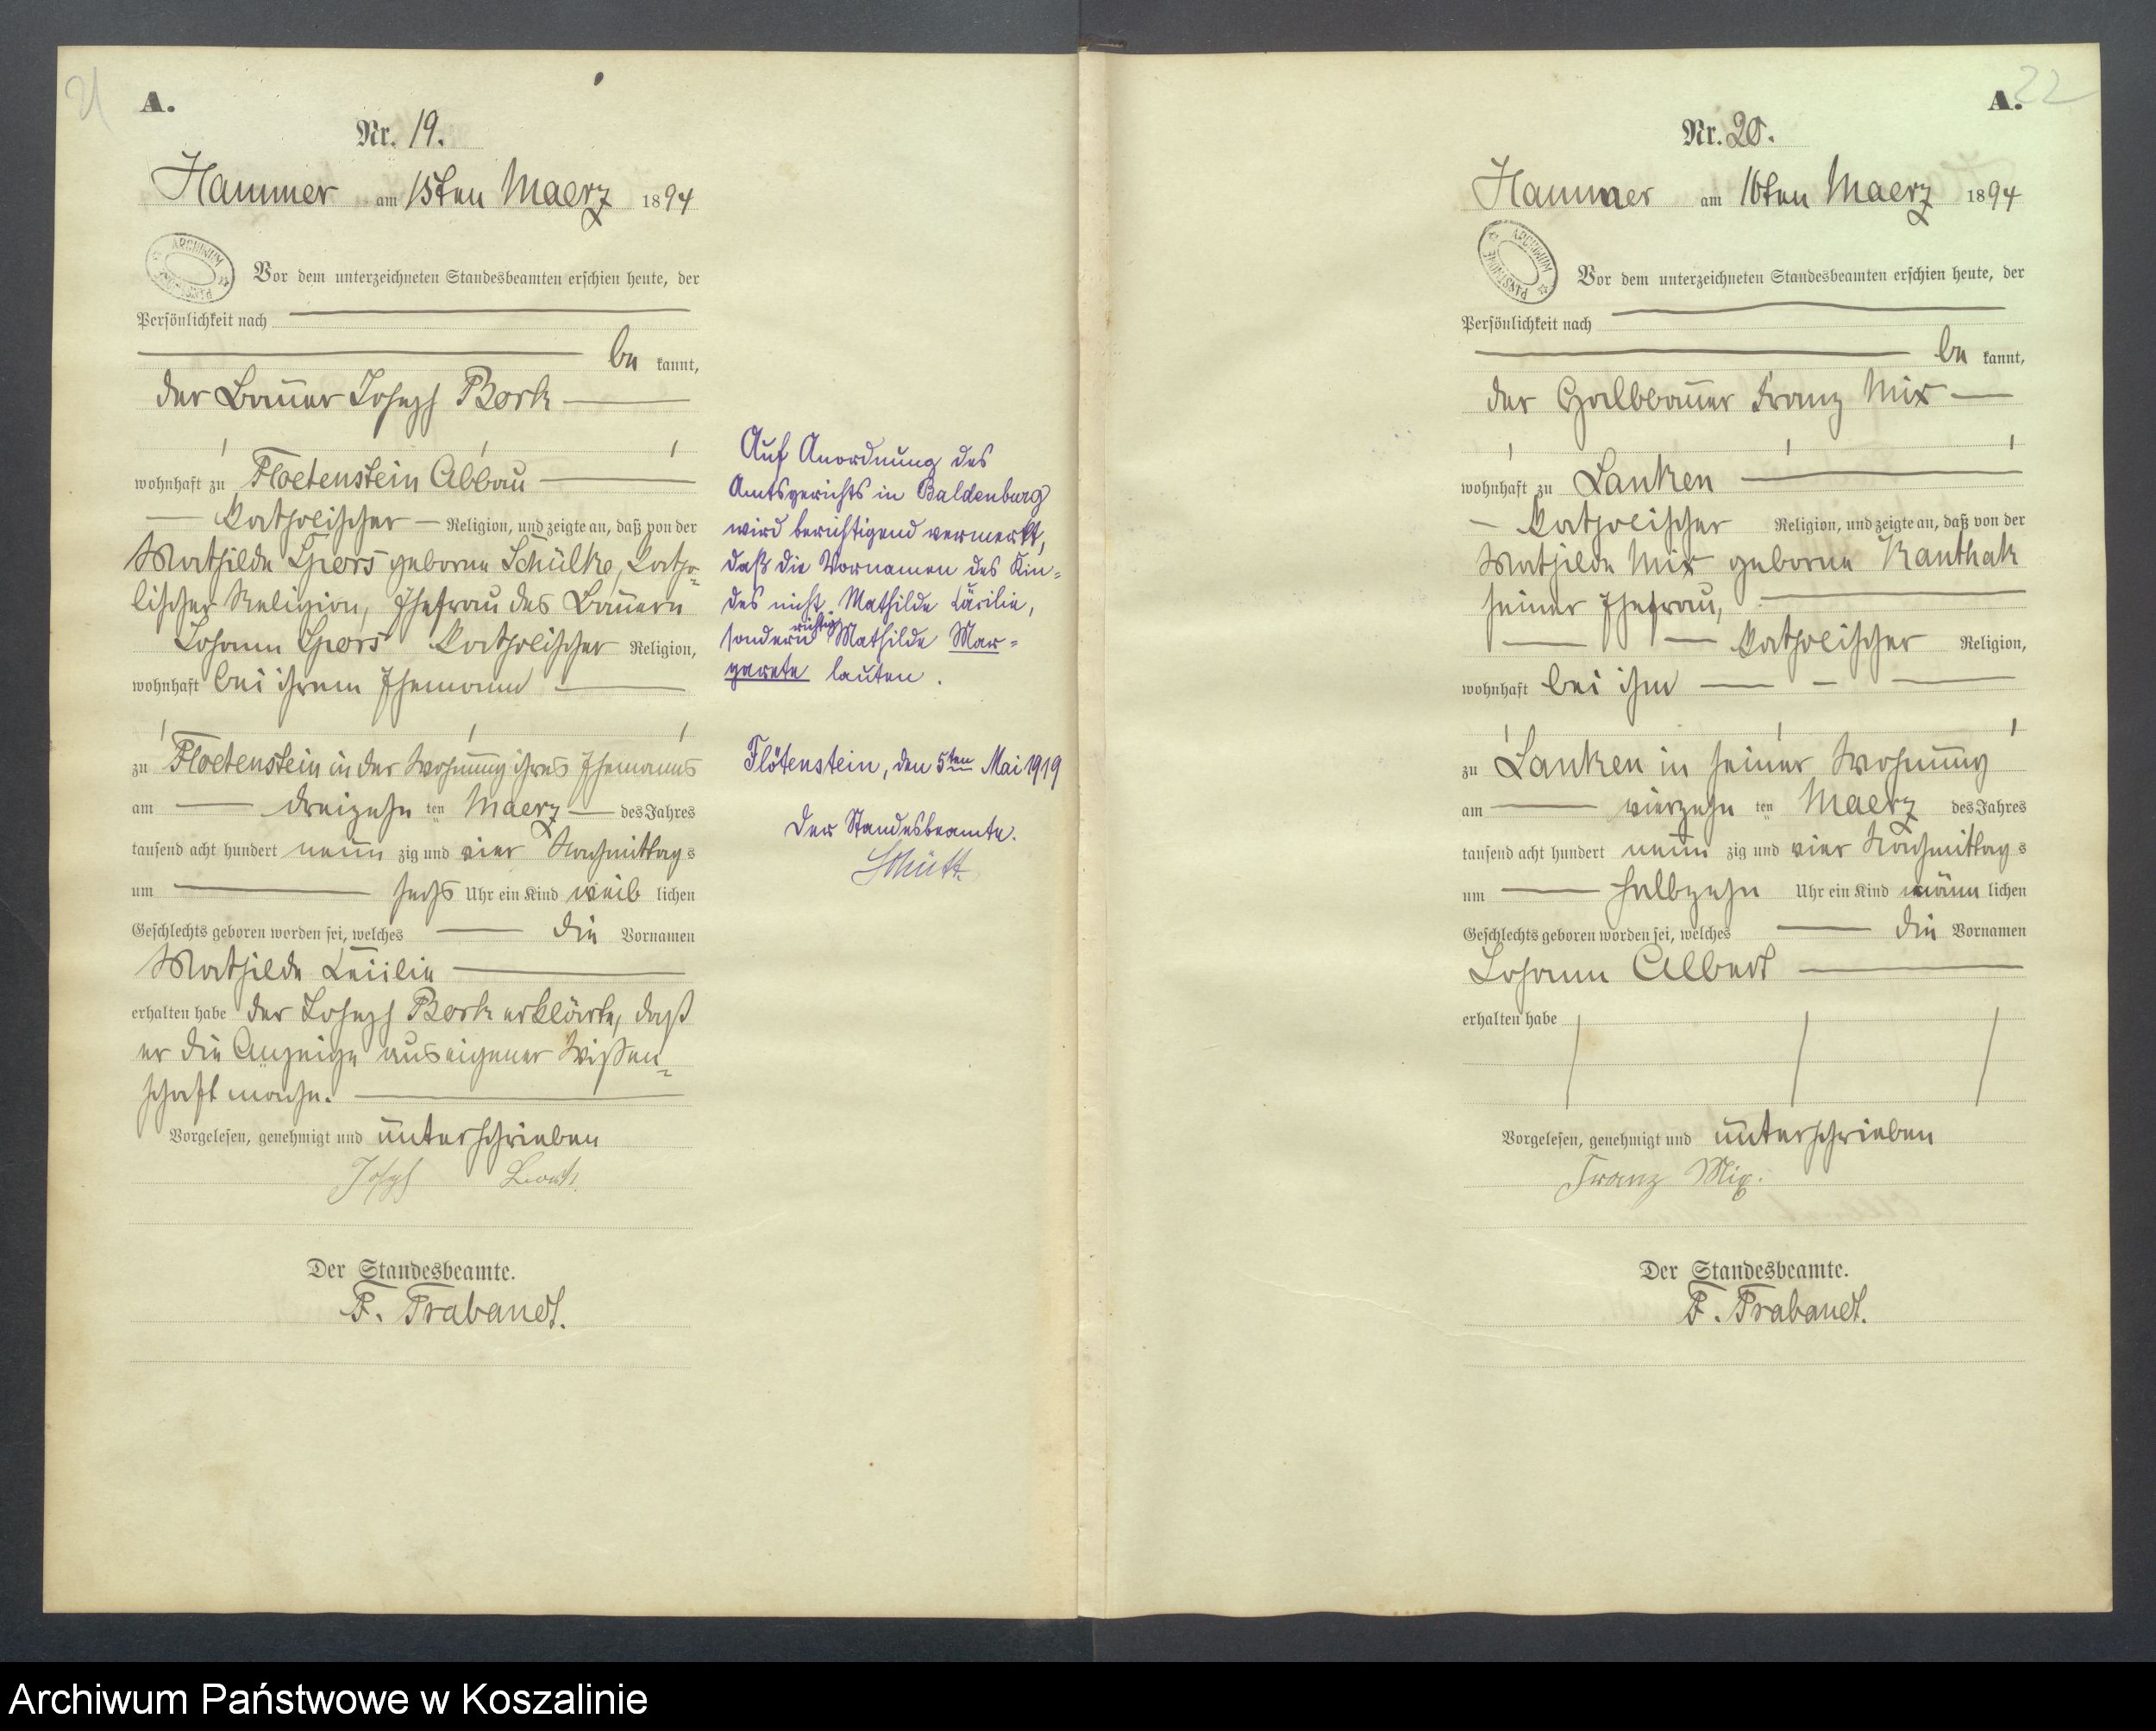 21
A.
Nr. 19.
Hammer am 15ten Maerz 1894
ARCHIWUM PAŃSTWOWE
Vor dem unterzeichneten Standesbeamten erschien heute, der
Persönlichkeit nach
be kannt,
der Bauer Joseph Bork
wohnhaft zu Floetenstein Abbau
katholischer Religion, und zeigte an, daß von der
Mathilde Spors geborne Schülke, katho-
lischer Religion, Ehefrau des Bauern
Johann Spors katholischer Religion,
wohnhaft bei ihrem Ehemann
zu Floetenstein in der Wohnung ihres Ehemanns
am dreizehn ten Maerz des Jahres
tausend acht hundert neun zig und vier Nachmittag s
um sechs Uhr ein Kind weib lichen
Geschlechts geboren worden sei, welches die Vornamen
Mathilde Cäcilie
erhalten habe der Joseph Bork erklärte, daß
er die Anzeige aus eigener Wissen-
schaft mache.
Vorgelesen, genehmigt und unterschrieben
Joseph Bork
Der Standesbeamte.
F. Trabandt.
Auf Anordnung des
Amtsgerichts in Baldenburg
wird berichtigend vermerkt,
daß die Vornamen des Kin-
des nicht Mathilde Cäcilie,
sondern richtig Mathilde Mar-
garete lauten.
Flötenstein, den 5ten Mai 1919
Der Standesbeamte.
Schütt
22
A.
Nr. 20.
Hammer am 16ten Maerz 1894
ARCHIWUM PAŃSTWOWE
Vor dem unterzeichneten Standesbeamten erschien heute, der
Persönlichkeit nach
be kannt,
der Halbbauer Franz Mix
wohnhaft zu Lanken
katholischer Religion, und zeigte an, daß von der
Mathilde Mix geborne Kanthak
seiner Ehefrau,
katholischer Religion,
wohnhaft bei ihm
zu Lanken in seiner Wohnung
am vierzehn ten Maerz des Jahres
tausend acht hundert neun zig und vier Nachmittag s
um halbzehn Uhr ein Kind männ lichen
Geschlechts geboren worden sei, welches die Vornamen
Johann Albert
erhalten habe
Vorgelesen, genehmigt und unterschrieben
Franz Mix.
Der Standesbeamte.
F. Trabandt.
Archiwum Państwowe w Koszalinie